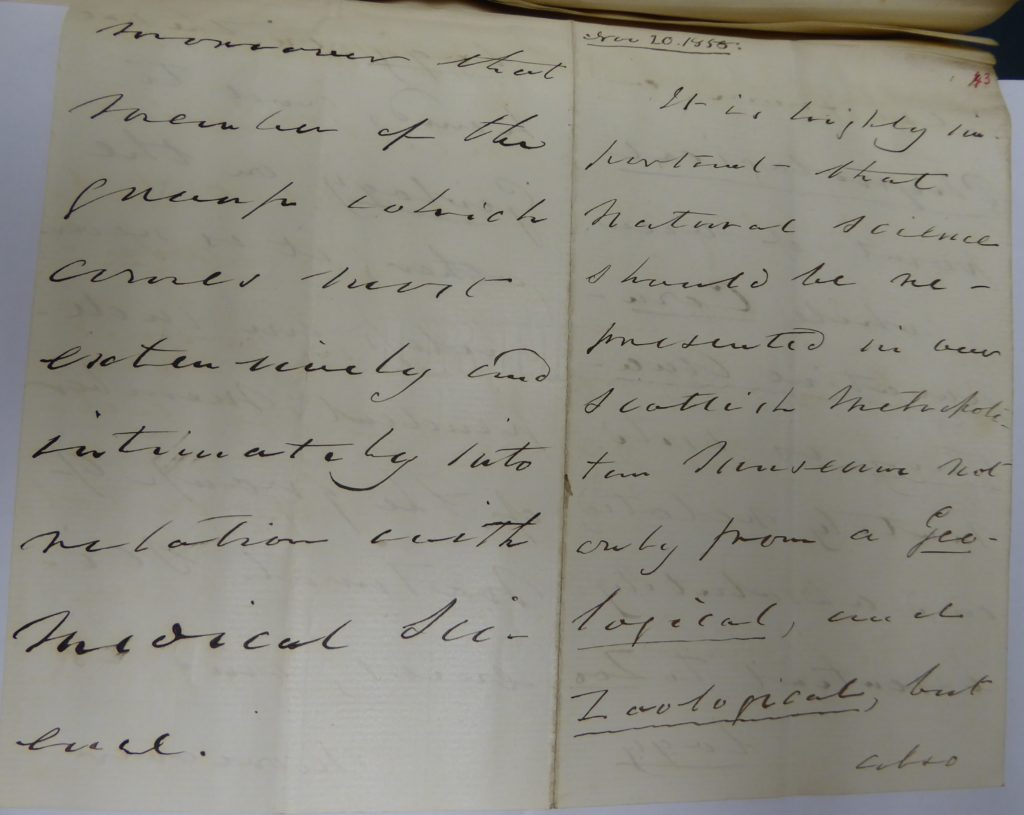 moreover that
member of the
group which
comes most
extensively and
intimately into
relation with
medical Sci-
ence.
Nov 20. 1855.
43
It is highly im-
portant that
Natural Science
should be re-
presented in our
Scottish Metropoli-
tan Museum not
only from a Geo-
logical, and
Zoological, but
also